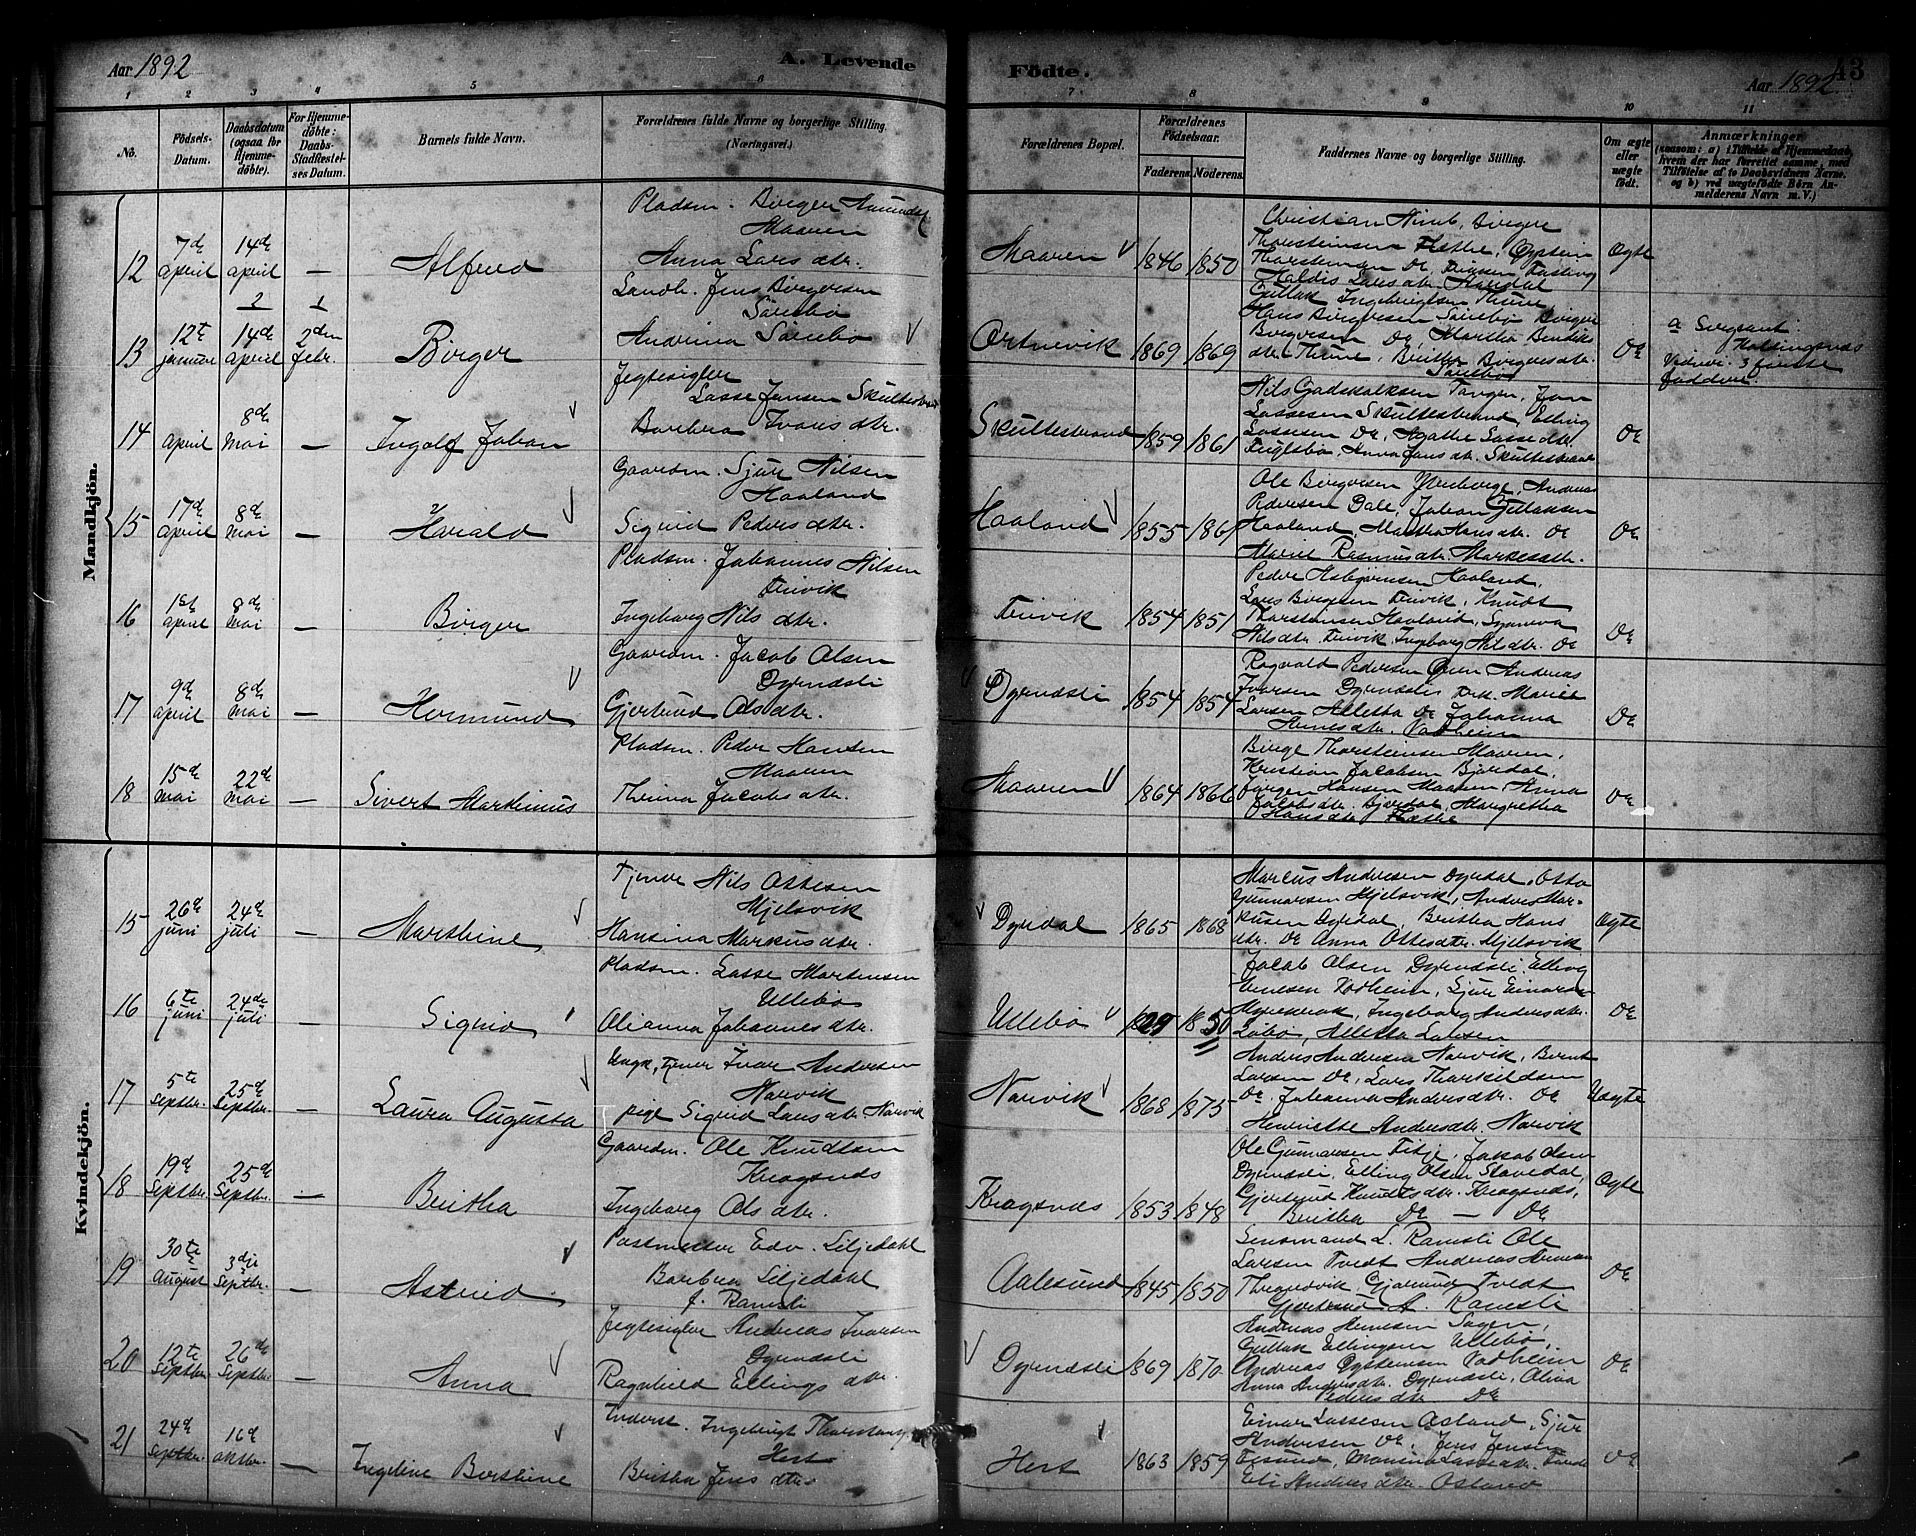 Aar 1892
A. Levende
Födte.
43
Aar 1892
1 2 3 4 5 6 7 8 9 10 11
No.
Födsels-
Datum.
Daabsdatum
(ogsaa for
Hjemme-
döbte).
For Hjemme-
döbte:
Daabs-
Stadfæstel-
ses Datum.
Barnets fulde Navn.
Forældrenes fulde Navne og borgerlige Stilling.
(Næringsvei.)
Forældrenes Bopæl.
Forældrenes
Födselsaar.
Faderens. Moderens.
Faddernes Navne og borgerlige Stilling.
Om ægte
eller
uægte
födt.
Anmærkninger
(saasom: a) i Tilfælde af Hjemmedaab,
hvem der har forrettet samme, med
Tilföielse af to Daabsvidners Navne,
og b) ved uægtefödte Börn An-
melderens Navn m. V.)
Mandkjön.
12
7de
april
14de
april
—
Alfred
Pladsm. Börger Amunds.
Maaren
Anna Lars dtr.
Maaren
1846 1850
Christian Nimb, Börger
Thorsteinsen Flæthe, Öystein
Thorsteinsen De,
Haldis Lars dtr.
Ægte
13
12te
januar
2
14de
april
1
2den
febr.
Börger
Landh. Jens Börgersen
Sörebö
Andrina Sörebö
Ortnevik
1869 1869
Gullak Ingebrigtsen Thune
Hans Börgersen Sörebö Börger
Börgersen De, Martha Bendiks
dtr. Thune, Britha Börgers dtr.
Sörebö
De
a Sergeant
3 første
faddere.
14
April
8de
Mai
—
Ingolf Johan
Jegteseigler
Lasse Jensen Skultestrand
Barbra Ivars dtr.
Skultestrand
1859 1861
Nils Gadskalksen Tangen, Jon
Lassesen Skultestrand, Elling
Lassesen De, Agathe Lasse dtr.
Fuglebö, Anna Jens dtr. Skultestrand
De
15
17de
April
8de
Mai
—
Harald
Gaardm. Sjur Nilsen
Haaland
Sigrid Peders dtr.
Haaland
1855 1861
Ole Börgersen Ytreberge, Andreas
Pedersen Dale, Johan Gullaksen
Haaland, Martha Hans dtr. De
Marie Rasmus dtr.
De
16
1st
April
8de
Mai
—
Börger
Pladsm. Johannes Nilsen
Fuivik
Ingeborg Nils dtr.
Fuivik
1854 1851
Peder Asbjörnsen Haaland,
Lars Börgesen Fuivik, Knudt
Thorstensen Haaland, Synneva
Nils dtr. Fuivik, Ingeborg Nils dtr. De
De
17
9de
April
8de
Mai
—
Hermund
Gaardm. Jacob Olsen
Dyrndsli
Gjertrud Ols dtr.
Dyrndsli
1854 1854
Ragvald Pedersen Ören Andreas
Ivarsen Dyrndsli,
Larsen Alletha De Johanna
Arnes dtr. Vadheim
De
18
15de
Mai
22de
Mai
—
Sivert Marthinus
Pladsm. Peder Hansen
Maaren
Thrina Jacobs dtr.
Maaren
1864 1866
Börge Thorsteinsen Maaren,
Kristian Jacobsen Bjordal,
Jörgen Hansen Maaren, Anna
Jacobs dtr. Bjordal, Margretha
Hans dtr. Flæthe
De
Kvindekjön.
15
26de
juni
24de
juli
—
Marthine
Tjener Nils Ottesen
Mjelsvik
Hansina Markus dtr.
Dyrdal
1865 1868
Marcus Andersen Dyrdal, Otto
Gunnarsen Mjelsvik, Anders Mar-
kusen Dyrdal, Britha Hans
dtr. De Anna Ottes dtr. Mjelsvik
Ægte
16
6te
juni
24de
juli
—
Sigrid
Pladsm. Lasse Mortensen
Ullebö
Olianna Johannes dtr.
Ullebö
1850
Jacob Olsen Dyrndsli, Elling
Arnesen Vadheim, Sjur Einarsen
Myrekrok, Ingeborg Anders dtr.
Löbö, Alletha Larsen
De
17
5te
Septbr.
25de
Septbr.
—
Laura Augusta
Ungk., tjener Ivar Andersen
Narvik
pige Sigrid Lars dtr. Narvik
Narvik
1868 1875
Anders Andersen Narvik, Bernt
Larsen De, Lars Thorkildsen
De, Johanna Anders dtr. De
Henriette Anders dtr. Narvik
Uægte
18
19de
Septbr.
25de
Septbr.
—
Britha
Gaardm. Ole Knudtsen
Kragsnæs
Ingeborg Ols dtr.
Kragsnæs
1853 1848
Ole Gunnarsen Titje, Jakob Olsen
Dyrndsli, Elling Olsen Stavedal,
Gjertrud Knudts dtr. Kragsnæs,
Britha De — De
Ægte
19
30te
August
3die
Septbr.
—
Astrid
Postmester Edv. Liljedahl
Barbra Liljedahl
f. Ramsli
Aalesund
1845 1850
Lensmand L. Ramsli Ole
Larsen Tvedt Andreas
Gjertrud Tvedt
Gjertrud A. Ramsli
De
20
12te
Septbr.
26de
Septbr.
—
Anna
Jegteseigler Andreas Ivarsen
Dyrndsli
Ragnhild Ellings dtr.
Dyrndsli
1869 1870
Andreas Arnesen Sagen,
Gullak Ellingsen Ullebö,
Andreas Öystensen Vadheim
Anna Anders dtr. Dyrndsli, Olina
Peders dtr. De
De
21
24de
Septbr.
16de
oktbr.
—
Ingeline Berthine
Inderst. Ingebrigt Thorstens.
Hest
Britha Jens dtr.
Hest
1863 1859
Einar Lassesen Asland, Sjur
Andersen De, Jens Jensen
Eli Anders dtr. Osland
De